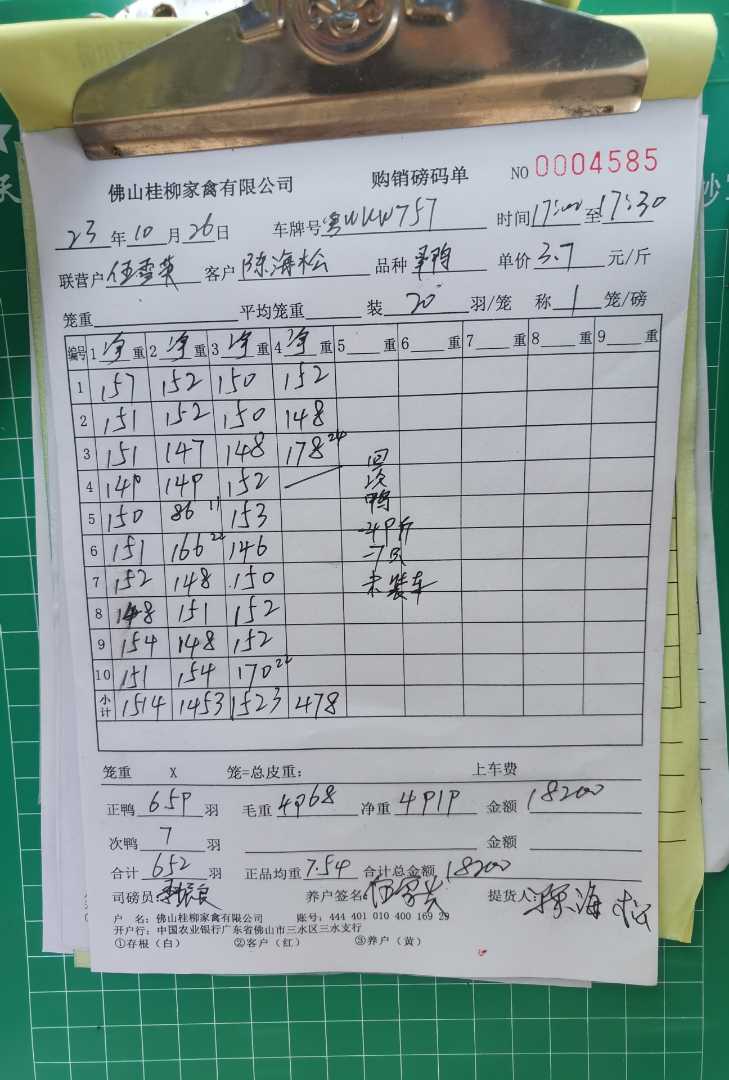 佛山桂柳家禽有限公司 购销磅码单 NO 0004585
23年10月26日 车牌号粤WKW757 时间17:00至17:30
联营户伍雪英 客户陈海松 品种 单价3.7元/斤
笼重 平均笼重 装20羽/笼 称1笼/磅
编号 1净重 2净重 3净重 4净重 5重 6重 7重 8重 9重
1 157 152 150 152
2 151 152 150 148
3 151 147 148 178 24
4 149 149 152
5 150 86 11 153
6 151 166 22 146
7 152 148 150
8 148 151 152
9 154 148 152
10 151 154 170 22
小计 1514 1453 1523 478
回
次
鸭
-49斤
-7只
未装车
笼重 X 笼=总皮重: 上车费
正鸭659羽 毛重4968 净重4919 金额18200
次鸭7羽 金额
合计652羽 正品均重7.54 合计总金额18200
司磅员: 养户签名: 提货人:陈海松
户 名:佛山桂柳家禽有限公司 账号:444 401 010 400 169 29
开户行:中国农业银行广东省佛山市三水区三水支行
①存根(白) ②客户(红) ③养户(黄)